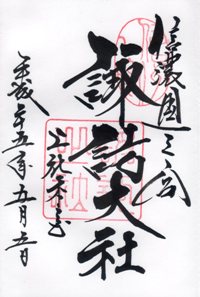 信濃國一之宮
諏訪大社
上社本宮
平成十五年五月日